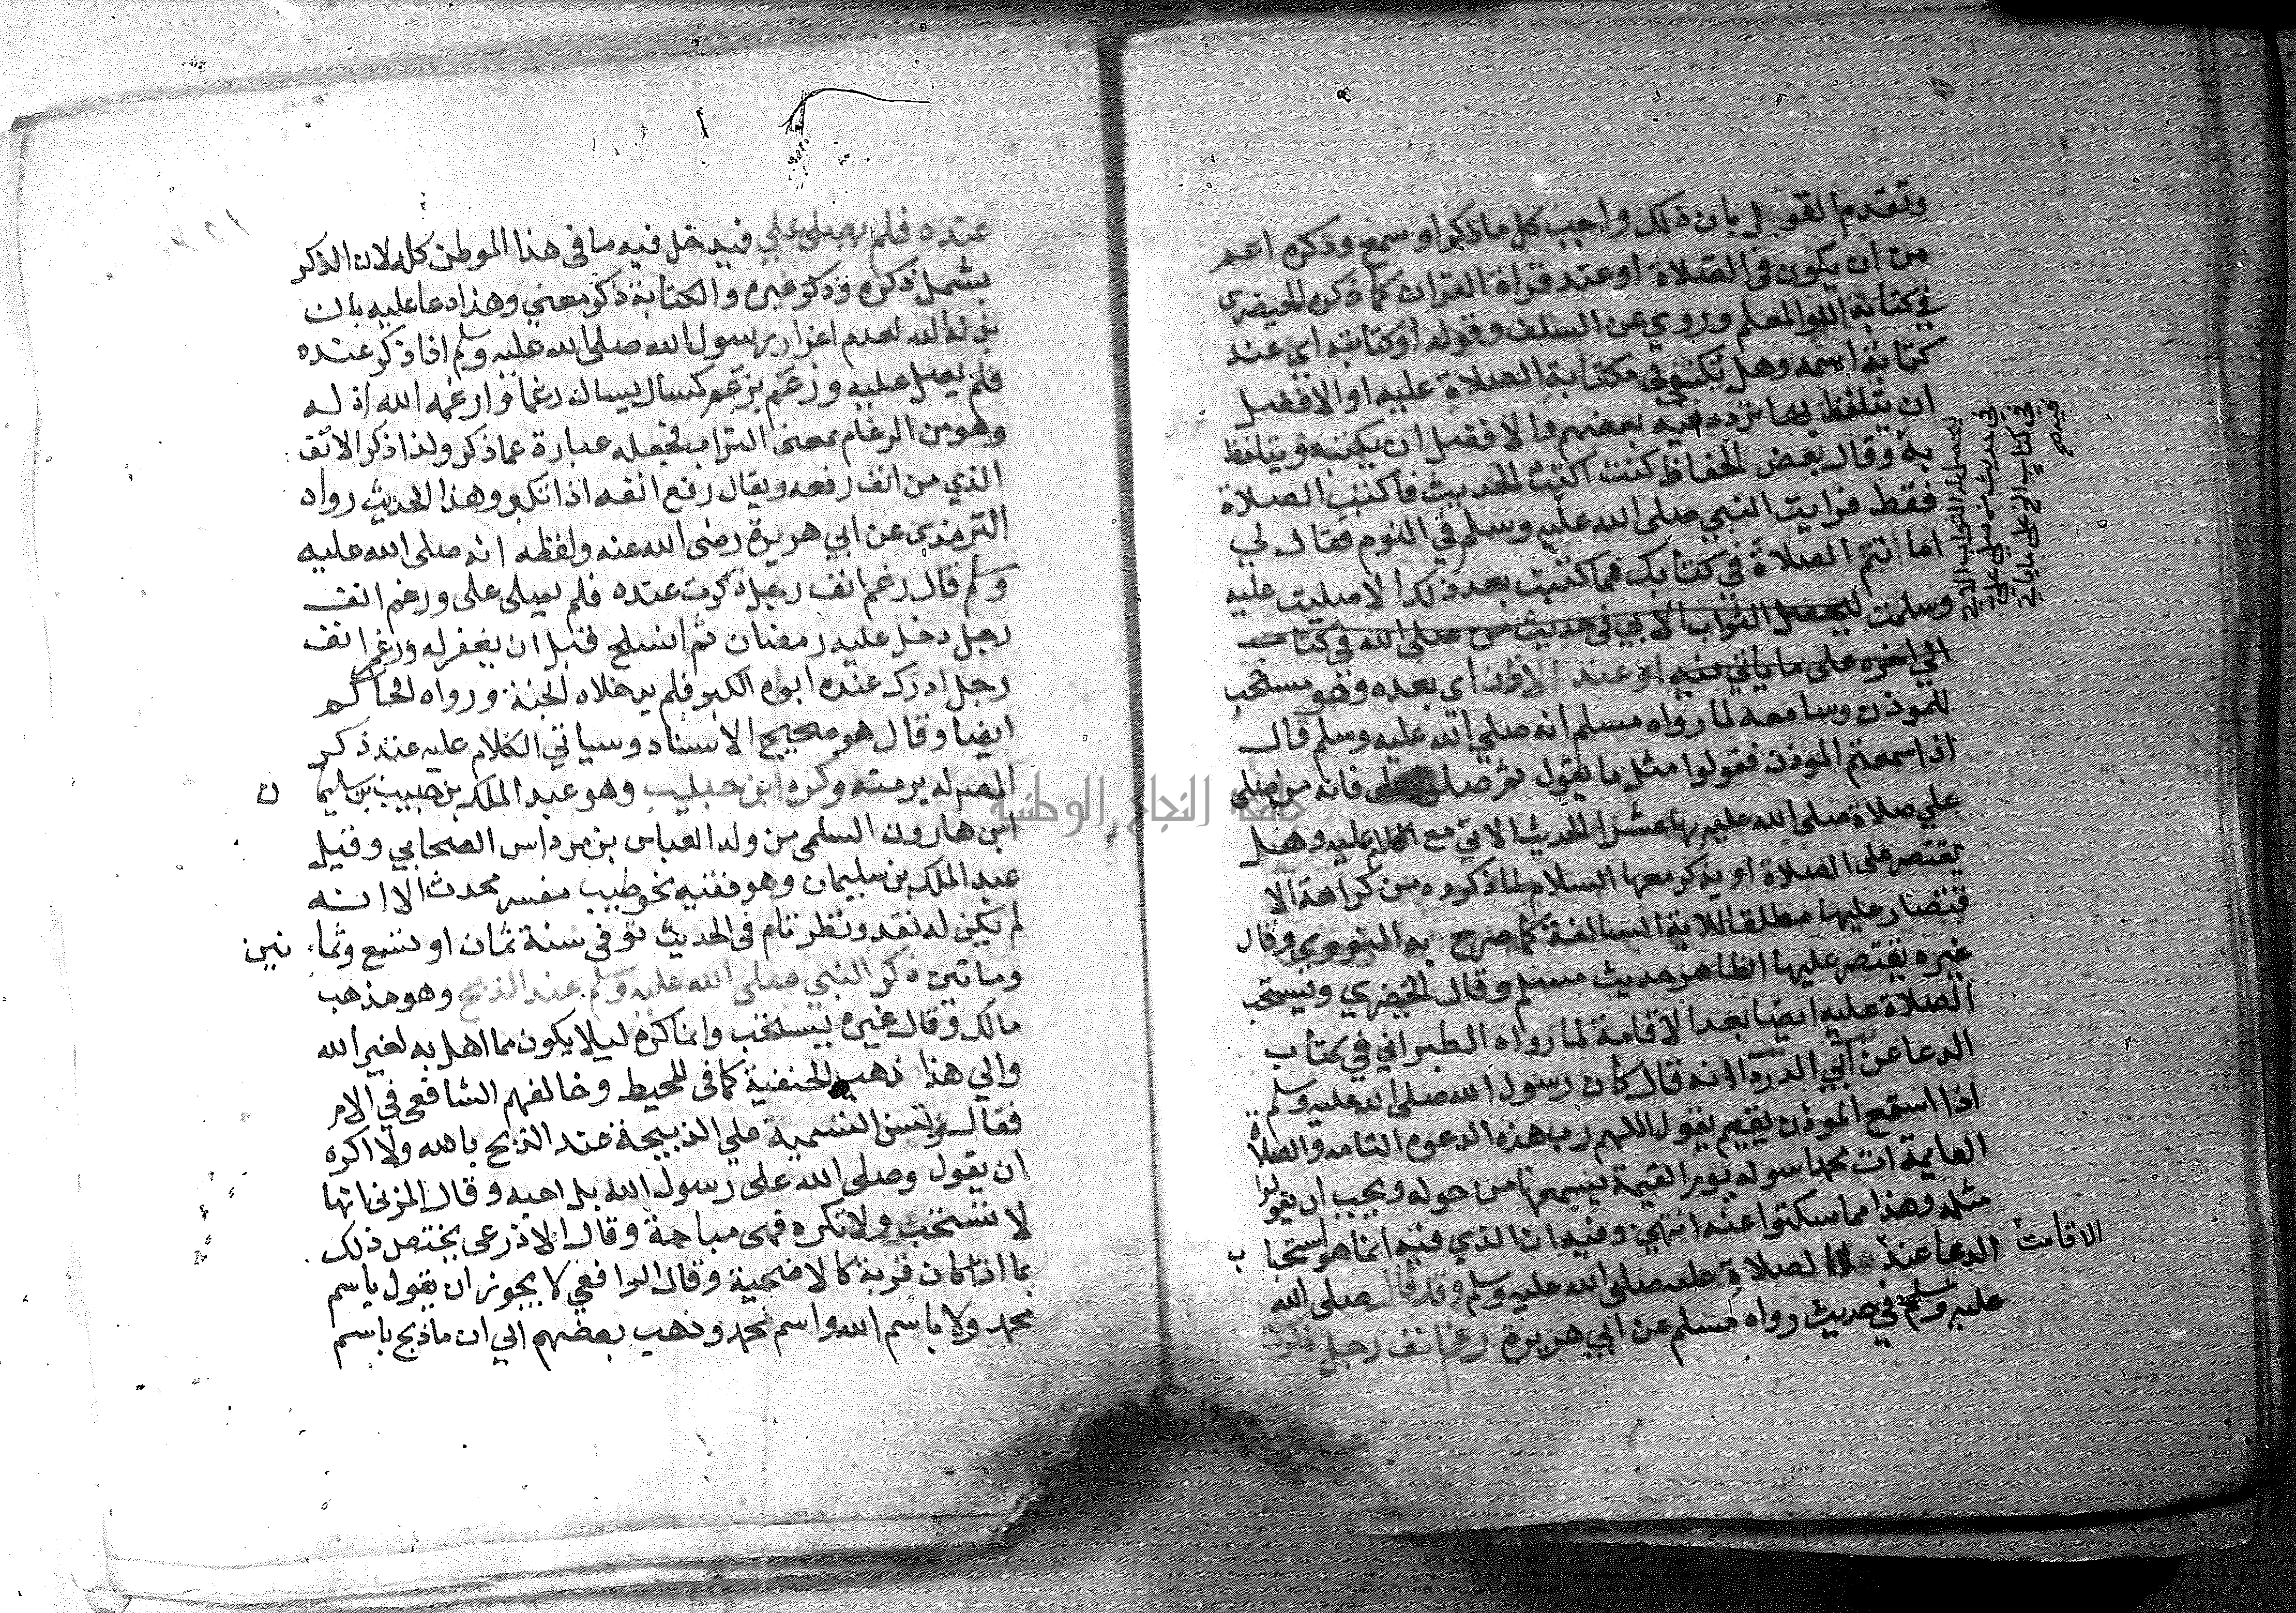 وتقدم القول بان ذلك واجب كل ما ذكر او سمع وذكره اعم
من ان يكون في الصلاة او عند قراة القران كما ذكره الخيضري
في كتابه اللوا المعلم وروي عن السلف وقوله او كتابته اي عند
كتابة اسمه وهل يكتفى بكتابة الصلاة عليه او الافضل
ان يتلفظ بها تردد فيه بعضهم والافضل ان يكتبه ويتلفظ
به وقال بعض الحفاظ كنت اكتب الحديث فاكتب الصلاة
فقط فرايت النبي صلى الله عليه وسلم في النوم فقال لي
اما تتم الصلاة في كتابك فما كتبت بعد ذلك الا صليت عليه
وسلمت ليحصل الثواب الاتي في حديث من صلى الله في كتاب
الى اخره على ما ياتي فيه او عند الاذان اي بعده وهو مستحب
للموذن وسامعه لما رواه مسلم انه صلى الله عليه وسلم قال
اذا سمعتم الموذن فقولوا مثل ما يقول ثم صلوا على فانه من صلى
علي صلاة صلى الله عليه بها عشرا الحديث الاتي مع الكلام عليه وهل
يقتصر على الصلاة او يذكر معها السلام لما ذكروه من كراهة الا
قتصار عليها مطلقا للاية السالفة كما صرح به النووي وقال
غيره يقتصر عليها لظاهر حديث مسلم وقال الخيضري ويستحب
الصلاة عليه ايضا بعد الاقامة لما رواه الطبراني في كتاب
الدعا عن ابي الدردا انه قال كان رسول الله صلى الله عليه وسلم
اذا استمع الموذن يقيم يقول اللهم رب هذه الدعوه التامه والصلاة
القايمة ات محمدا سوله يوم القيمة يسمعها من حوله ويجب ان يقولوا
مثله وهذا مما سكتوا عنه انتهي وفيه ان الذي فيه انما هو استحباب
الدعا عند الاقامت لا الصلاة عليه صلى الله عليه وسلم وقد قال صلى الله
عليه وسلم في حديث رواه مسلم عن ابي هريرة رغم انف رجل ذكرت
ليحصل له الثواب الاتي
في حديث من صلى علي
في كتاب الخ على ما ياتي
عنده فلم يصلى علي فيدخل فيه ما في هذا الموطن كله لان الذكر
يشمل ذكره وذكر غيره والكتابة ذكر معني وهذا دعا عليه بان
يذله الله لعدم اعزازه رسول الله صلى الله عليه وسلم اذا ذكر عنده
فلم يصل عليه ورغم يرغم كسال يسال رغما وارغمه الله اذله
وهو من الرغام بمعنى التراب فجعله عبارة عما ذكر ولذا ذكر الانف
الذي من انف رفعه ويقال رفع انفه اذا تكبر وهذا الحديث رواه
الترمذي عن ابي هريرة رضى الله عنه ولفظه انه صلى الله عليه
وسلم قال رغم انف رجل ذكرت عنده فلم يصلى على ورغم انف
رجل دخل عليه رمضان ثم انسلخ قبل ان يغفر له ورغم انف
رجل ادرك عنده ابواه الكبر فلم يدخلاه الجنة ورواه الحاكم
ايضا وقال هو صحيح الاسناد وسياتي الكلام عليه عند ذكر
المص له برمته وكره ابن حبيب وهو عبد الملك بن حبيب بن سليمان
ابن هارون السلمى من ولد العباس بن مرداس الصحابي وقيل
عبد الملك بن سليمان وهو فقيه نحو طبيب مفسر محدث الا انه
لم يكن له نقد ونظر تام في الحديث توفي سنة ثمان او تسع وثمانين
وماتين ذكر النبي صلى الله عليه وسلم عند الذبح وهو مذهب
مالك وقال غيره يستحب وانما كره ليلا يكون مما اهل به لغير الله
والي هذا ذهب الحنفية كما في المحيط وخالفهم الشافعي في الام
فقال وتسن التسمية على الذبيحة عند الذبح بالله ولا اكره
ان يقول وصلى الله على رسول الله بل احبه وقال المزني انها
لا تستحب ولا تكره فهى مباحة وقال الاذرعي يختص ذلك
بما اذا كان قربة كالاضحية وقال الرافعي لا يجوز ان يقول باسم
محمد ولا باسم الله واسم محمد وذهب بعضهم الي ان ما ذبح باسم
جامعة النجاح الوطنية